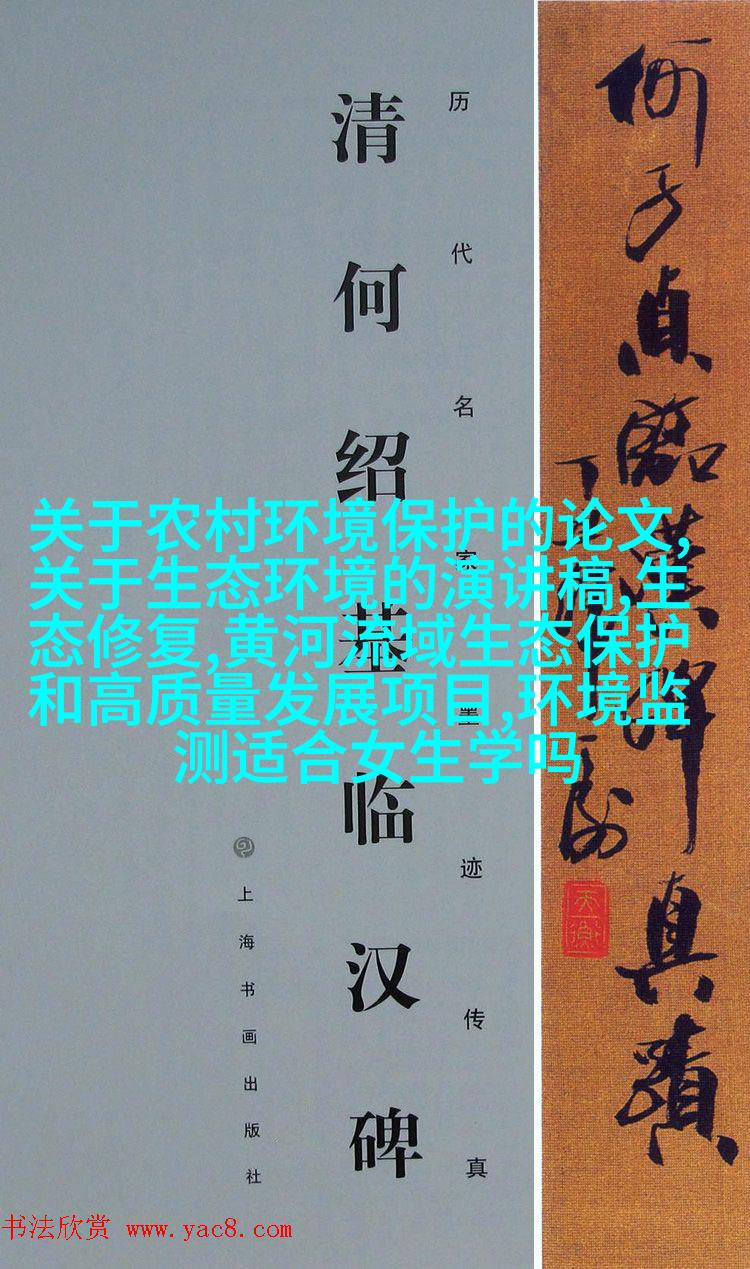 历代名家墨迹传真
清何绍基临汉碑
上海书画出版社
何子貞臨漢碑真蹟
天衡
关于农村环境保护的论文,
关于生态环境的演讲稿,生
态修复,黄河流域生态保护
和高质量发展项目,环境监
测适合女生学吗
书法欣赏 www.yac8.com